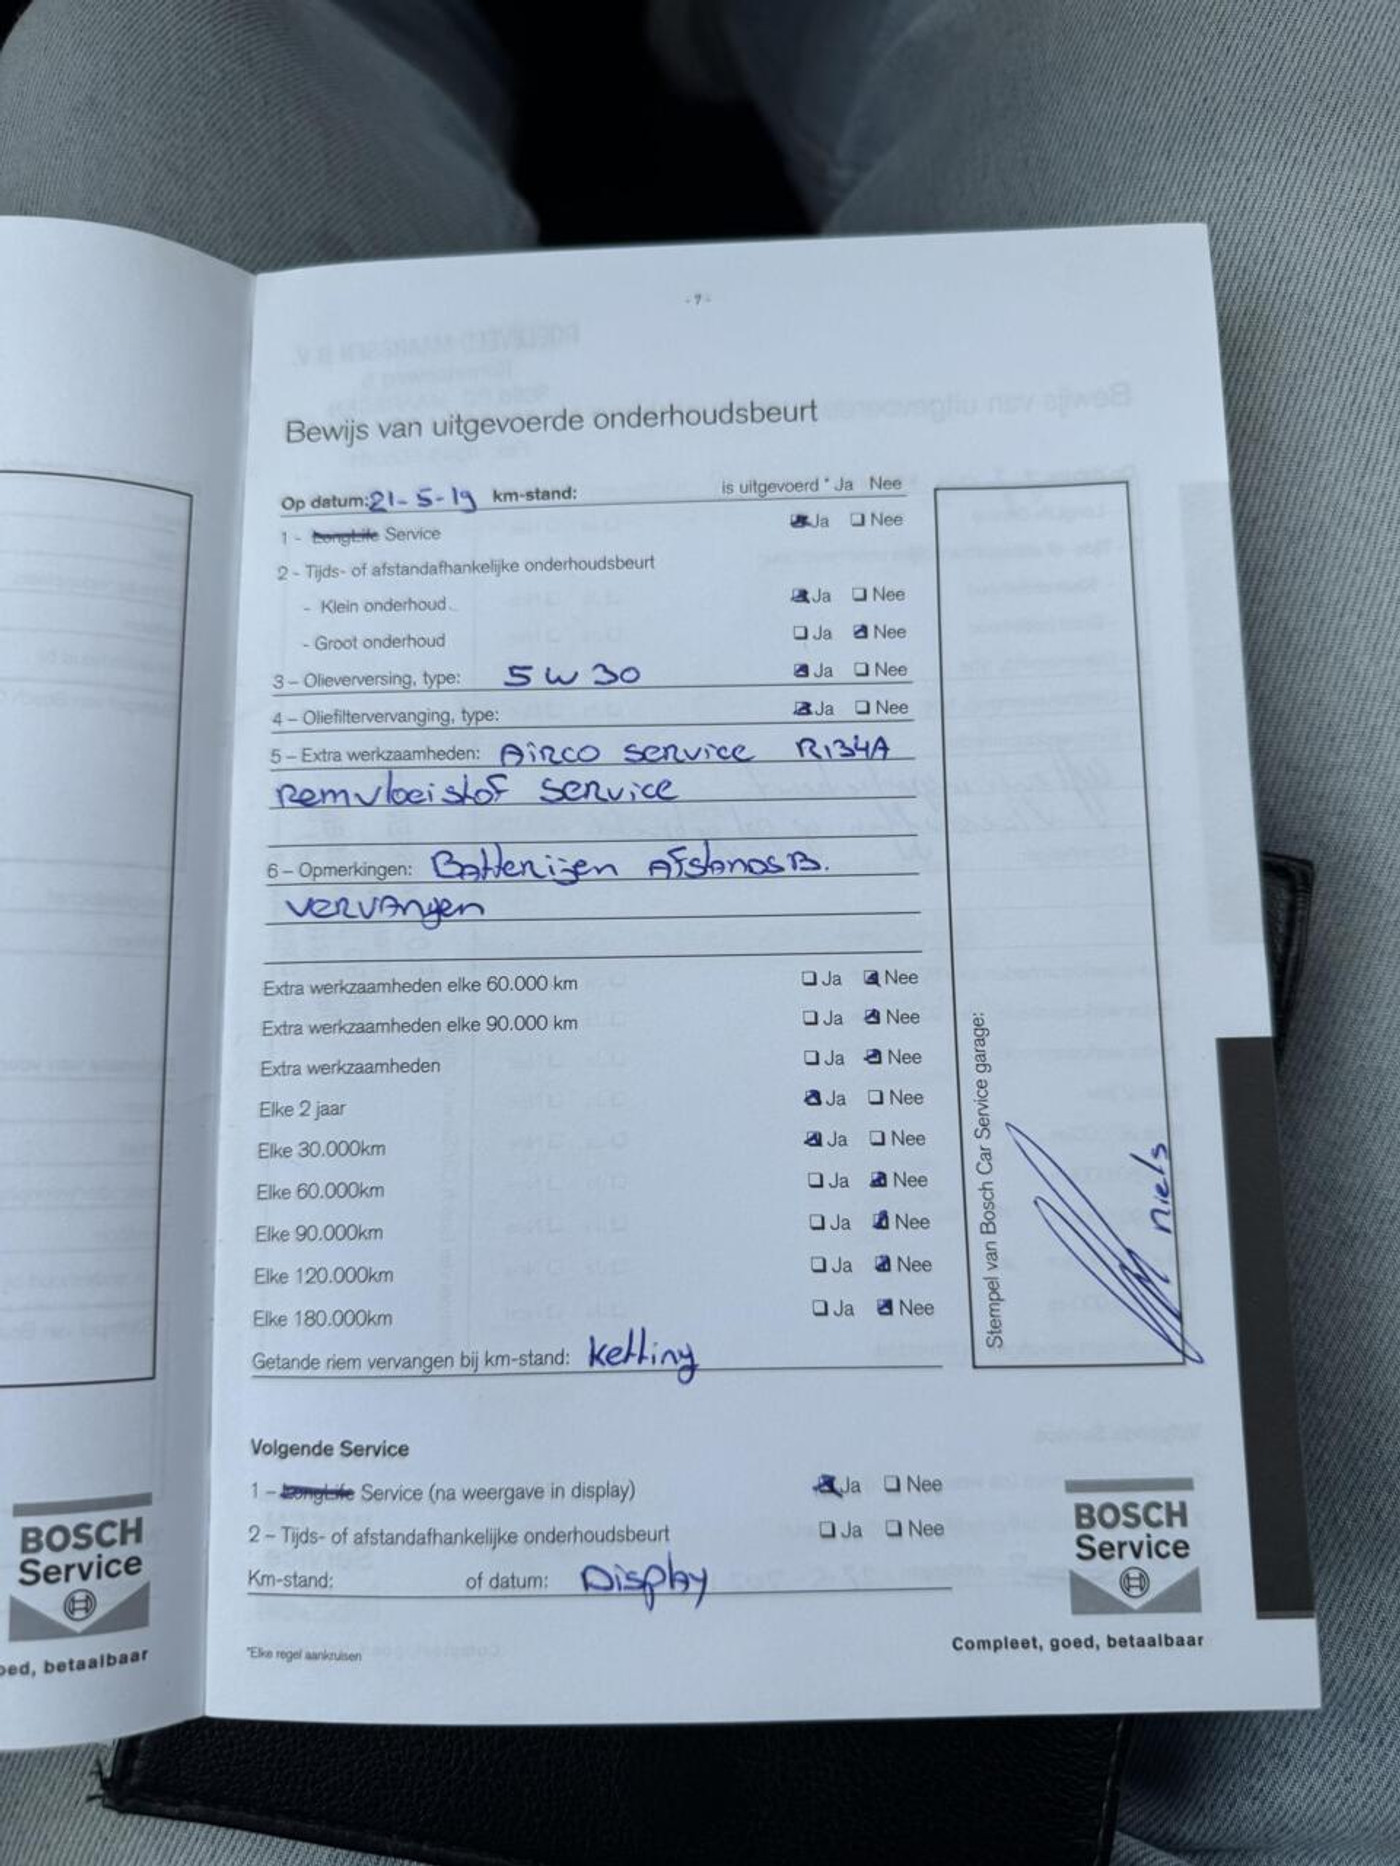 - 7 -
Bewijs van uitgevoerde onderhoudsbeurt
Op datum: 21-5-19 km-stand: is uitgevoerd * Ja Nee
1 - LongLife Service Ja Nee
2 - Tijds- of afstandafhankelijke onderhoudsbeurt
- Klein onderhoud Ja Nee
- Groot onderhoud Ja Nee
3 – Olieverversing, type: 5W30 Ja Nee
4 – Oliefiltervervanging, type: Ja Nee
5 – Extra werkzaamheden: Airco service R134A
Remvloeistof service
6 – Opmerkingen: Batterijen AfstandsB.
vervangen
Extra werkzaamheden elke 60.000 km Ja Nee
Extra werkzaamheden elke 90.000 km Ja Nee
Extra werkzaamheden Ja Nee
Elke 2 jaar Ja Nee
Elke 30.000km Ja Nee
Elke 60.000km Ja Nee
Elke 90.000km Ja Nee
Elke 120.000km Ja Nee
Elke 180.000km Ja Nee
Getande riem vervangen bij km-stand: ketting
Stempel van Bosch Car Service garage:
niels
Volgende Service
1 – LongLife Service (na weergave in display) Ja Nee
2 – Tijds- of afstandafhankelijke onderhoudsbeurt Ja Nee
Km-stand: of datum: Display
*Elke regel aankruisen
BOSCH
Service
Compleet, goed, betaalbaar
BOSCH
Service
betaalbaar